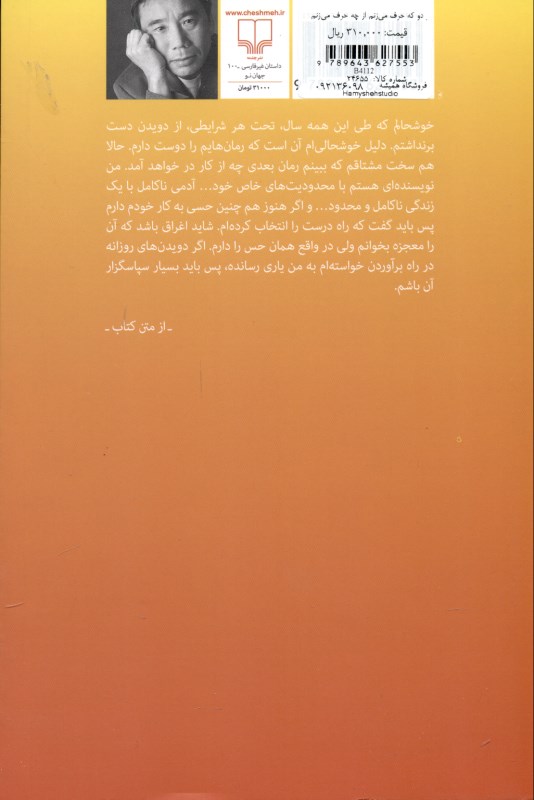 www.cheshmeh.ir
داستان غیرفارسی ـ ۱۰۰
جهان نو
۳۱۰۰۰ تومان
دو که حرف می‌زنم از چه حرف می‌زنم
قیمت: ۳۱۰,۰۰۰ ریال
9 789643 627553
B4112
شماره کالا: ۲۴۶۵۵
فروشگاه همیشه ۰۹۲۱۳۶۰۹۸
Hamyshehstudio
خوشحالم که طی این همه سال، تحت هر شرایطی، از دویدن دست
برنداشتم. دلیل خوشحالی‌ام آن است که رمان‌هایم را دوست دارم. حالا
هم سخت مشتاقم که ببینم رمان بعدی چه از کار در خواهد آمد. من
نویسنده‌ای هستم با محدودیت‌های خاص خود... آدمی ناکامل با یک
زندگی ناکامل و محدود... و اگر هنوز هم چنین حسی به کار خودم دارم
پس باید گفت که راه درست را انتخاب کرده‌ام. شاید اغراق باشد که آن
را معجزه بخوانم ولی در واقع همان حس را دارم. اگر دویدن‌های روزانه
در راه برآوردن خواسته‌ام به من یاری رسانده، پس باید بسیار سپاسگزار
آن باشم.
ـ از متن کتاب ـ